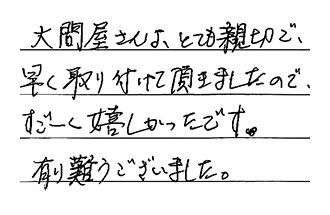 大問屋さんは、とても親切で、
早く取り付けて頂きましたので、
すごーく嬉しかったです。
有り難うございました。